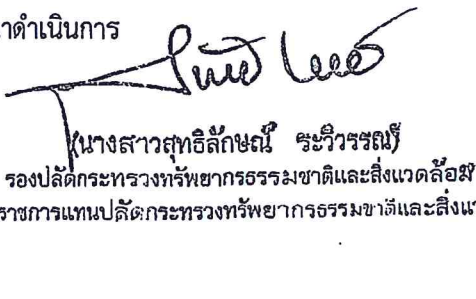 าดำเนินการ
(นางสาวสุทธิลักษณ์ ระวิวรรณ)
รองปลัดกระทรวงทรัพยากรธรรมชาติและสิ่งแวดล้อม
ราชการแทนปลัดกระทรวงทรัพยากรธรรมชาติและสิ่งแ